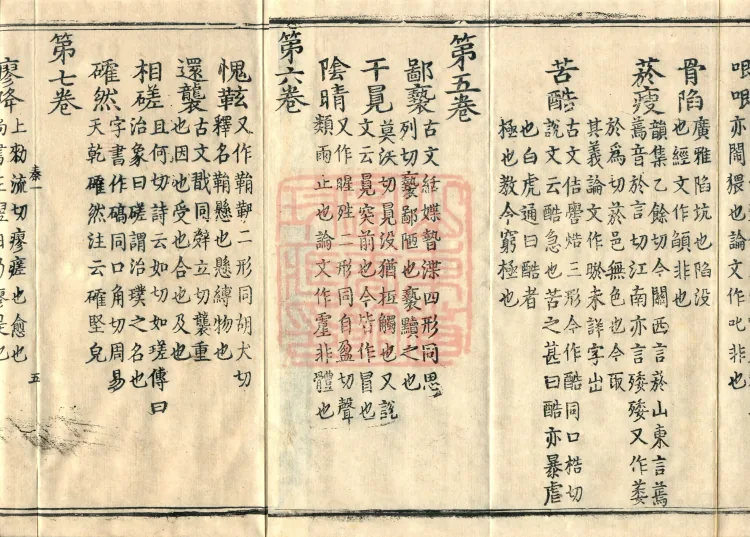 亦閙猥也論文作叱非也
骨陷廣雅陷坑也陷没
也經文作非也
菸瘦韻集乙餘切今關西言菸山東言蔫
蔫音於言切江南亦言矮矮又作萎
於為切菸邑無色也今取
其義論文作瘀未詳字出
苦酷古文佶嚳焅三形今作酷同口梏切
說文云酷急也苦之甚曰酷亦暴虐
也白虎通曰酷者
極也教令窮極也
第五卷
鄙褻古文絬媟暬渫四形同思
列切褻鄙陋也褻黷之也
干莫沃切没猶觸也又說
文云突前也今皆作冒也
陰晴又作暒二形同自盈切聲
類雨止也論文作非體也
第六卷
愧又作二形同胡犬切
釋名懸也懸縛物也
還襲古文戢同辝立切襲重
也因也受也合也及也
相磋且何切詩云如切如瑳傳曰
治象曰磋謂治璞之名也
確然字書作碻同口角切周易
天乾確然注云確堅皃
第七卷
廖降上勑流切瘳瘥也愈也
尚書王翌日乃瘳是也
秦一 五